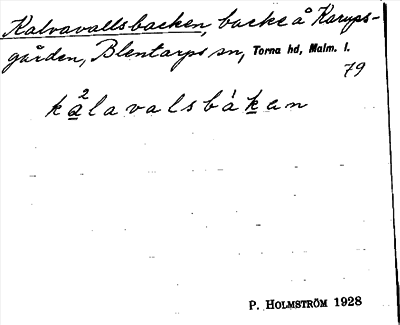 Kalvavallsbacken, backe å Karups-
gården, Blentarps sn, Torna hd, Malm. l.
79
ka²lavalsbákan
P. HOLMSTRÖM 1928